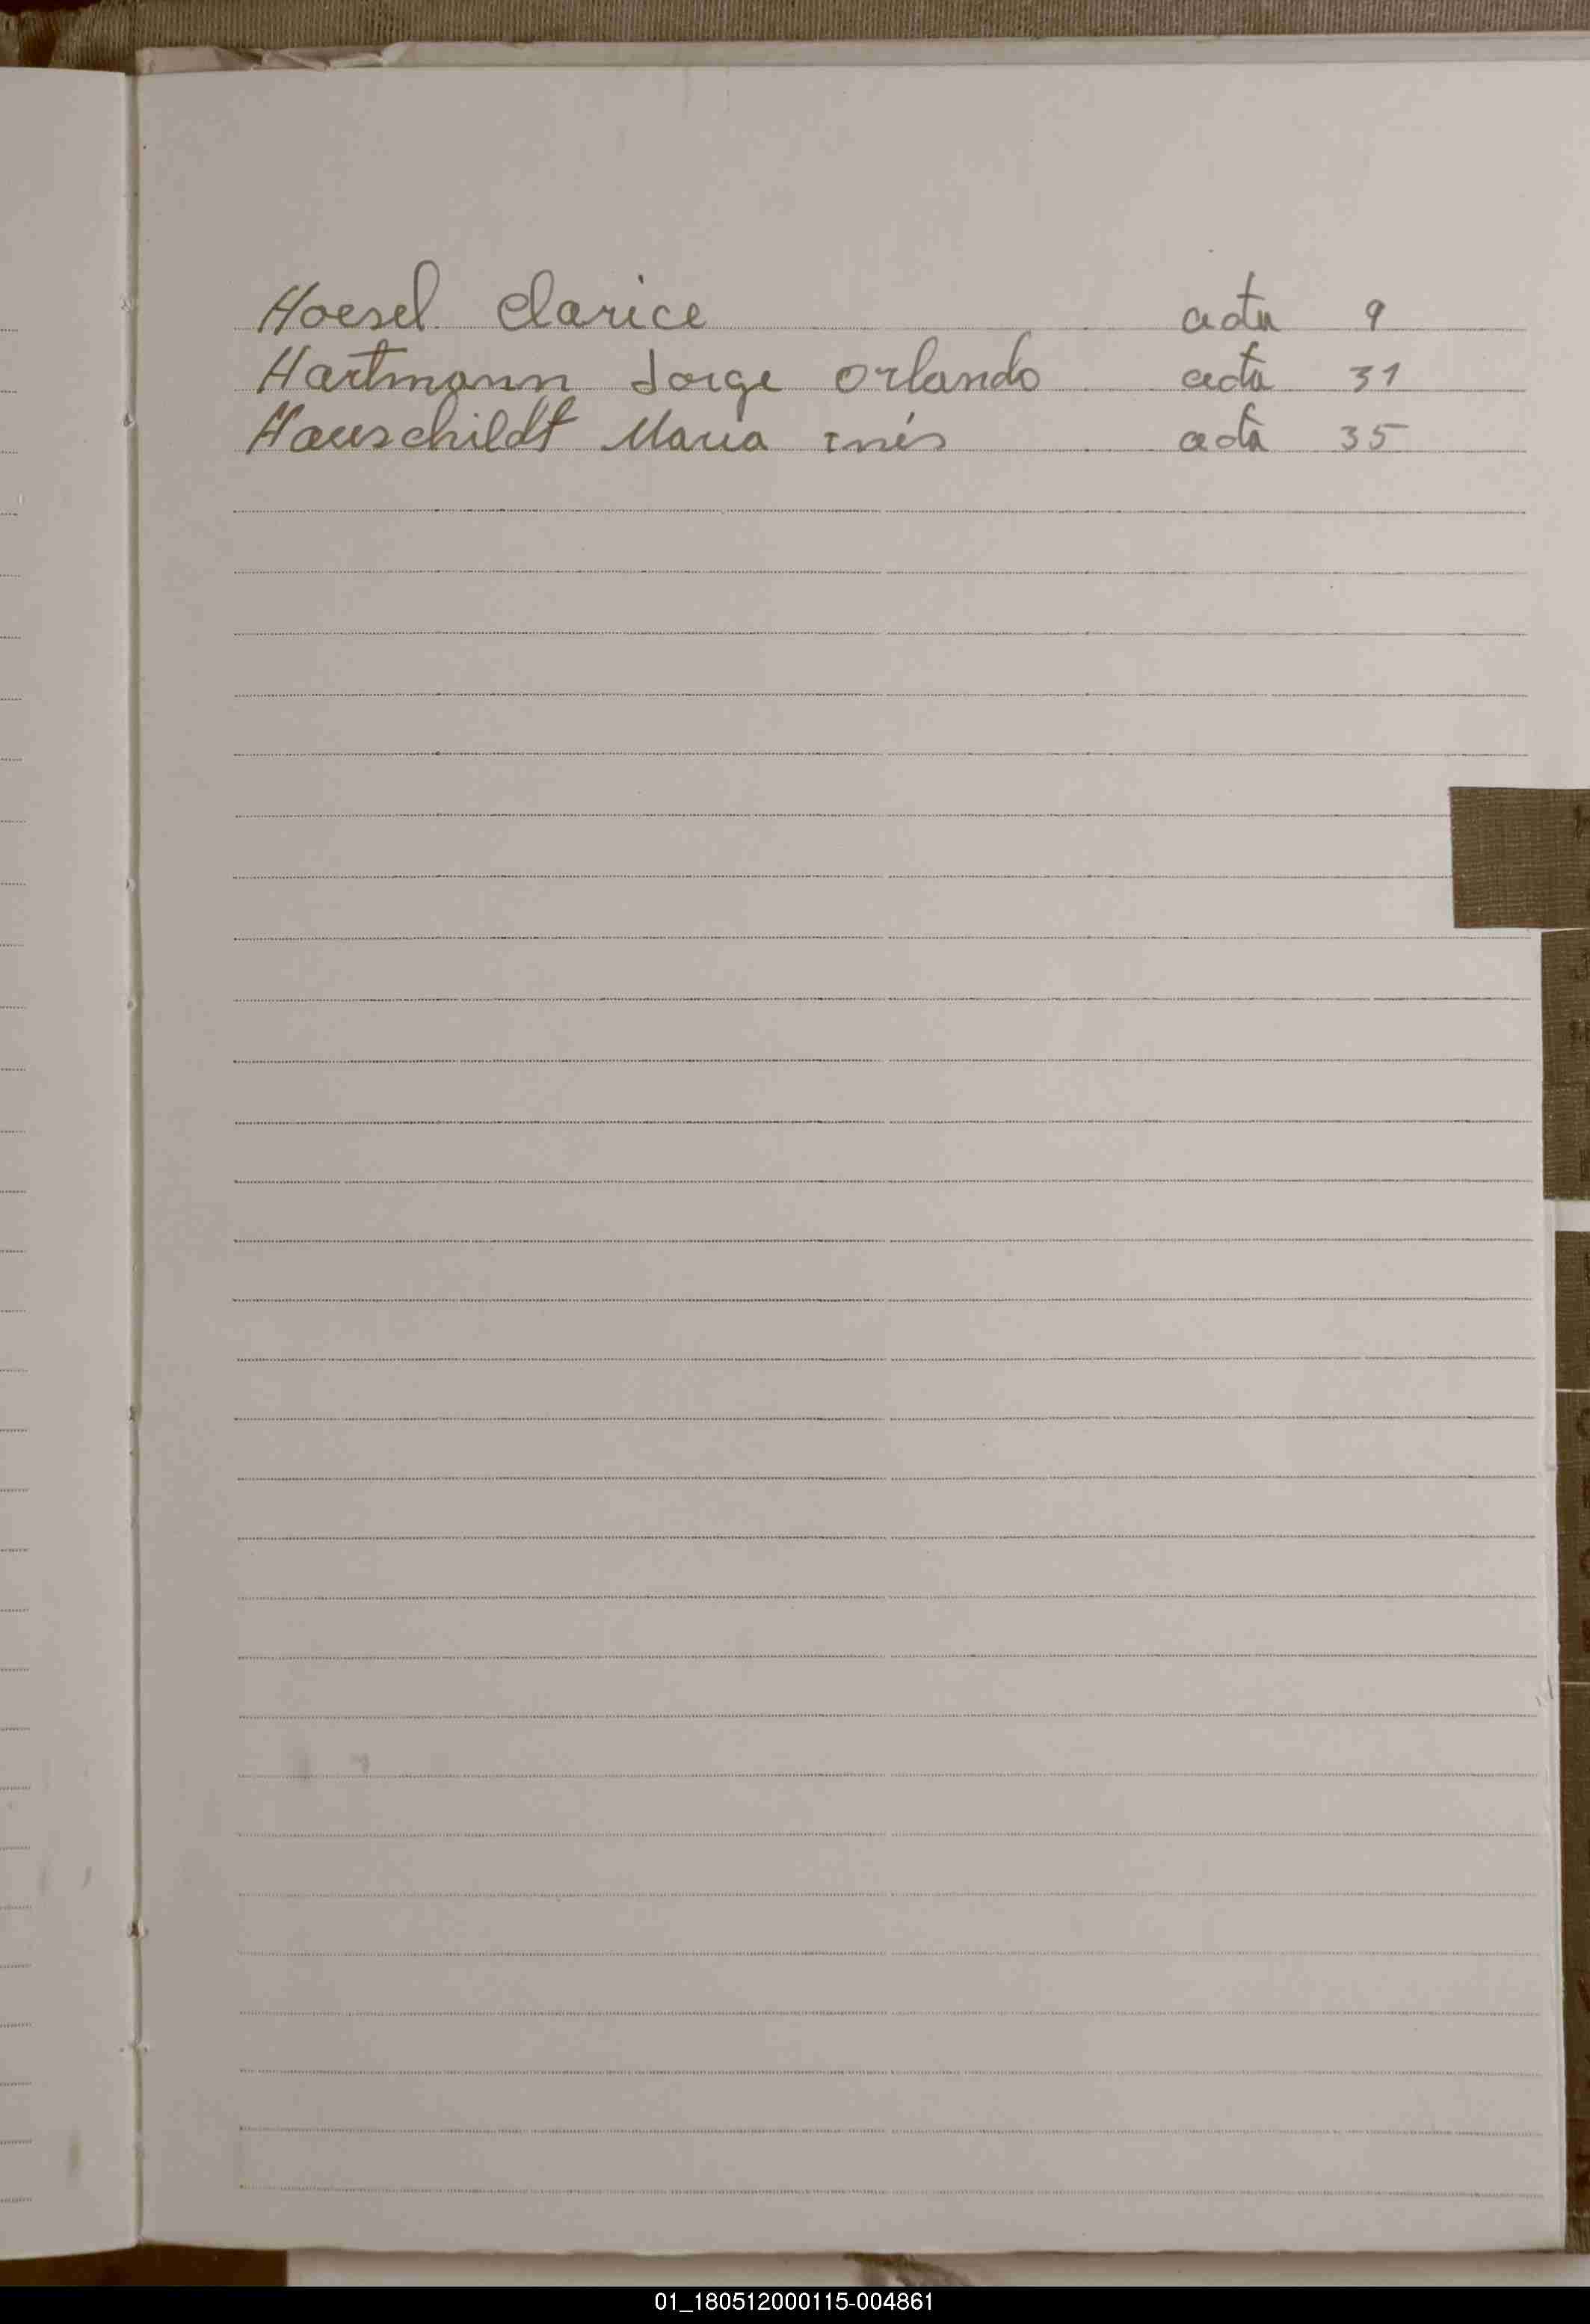 Hoesel Clarice acta 9
Hartmann Jorge Orlando acta 31
Hauschildt Maria Inés acta 35
01_180512000115-004861